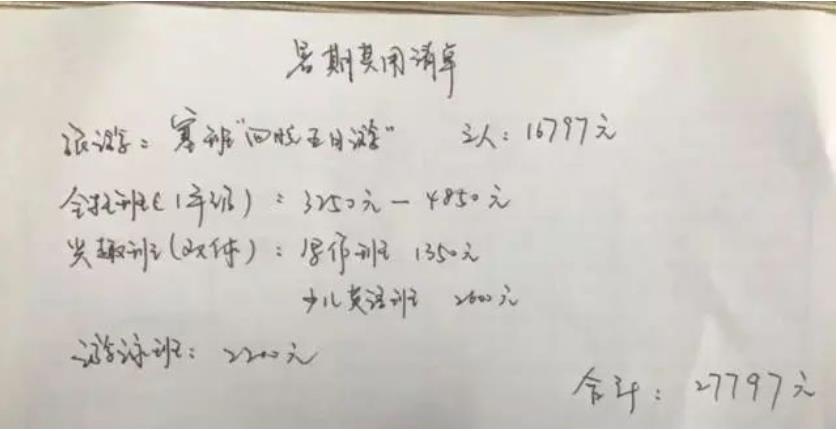 暑期费用清单
旅游：塞班“四晚五日游” 三人：16797元
全托班（1年级）：3250元－4850元
兴趣班（文体）：写作班 1350元
少儿英语班 2600元
游泳班：2200元
合计：27797元